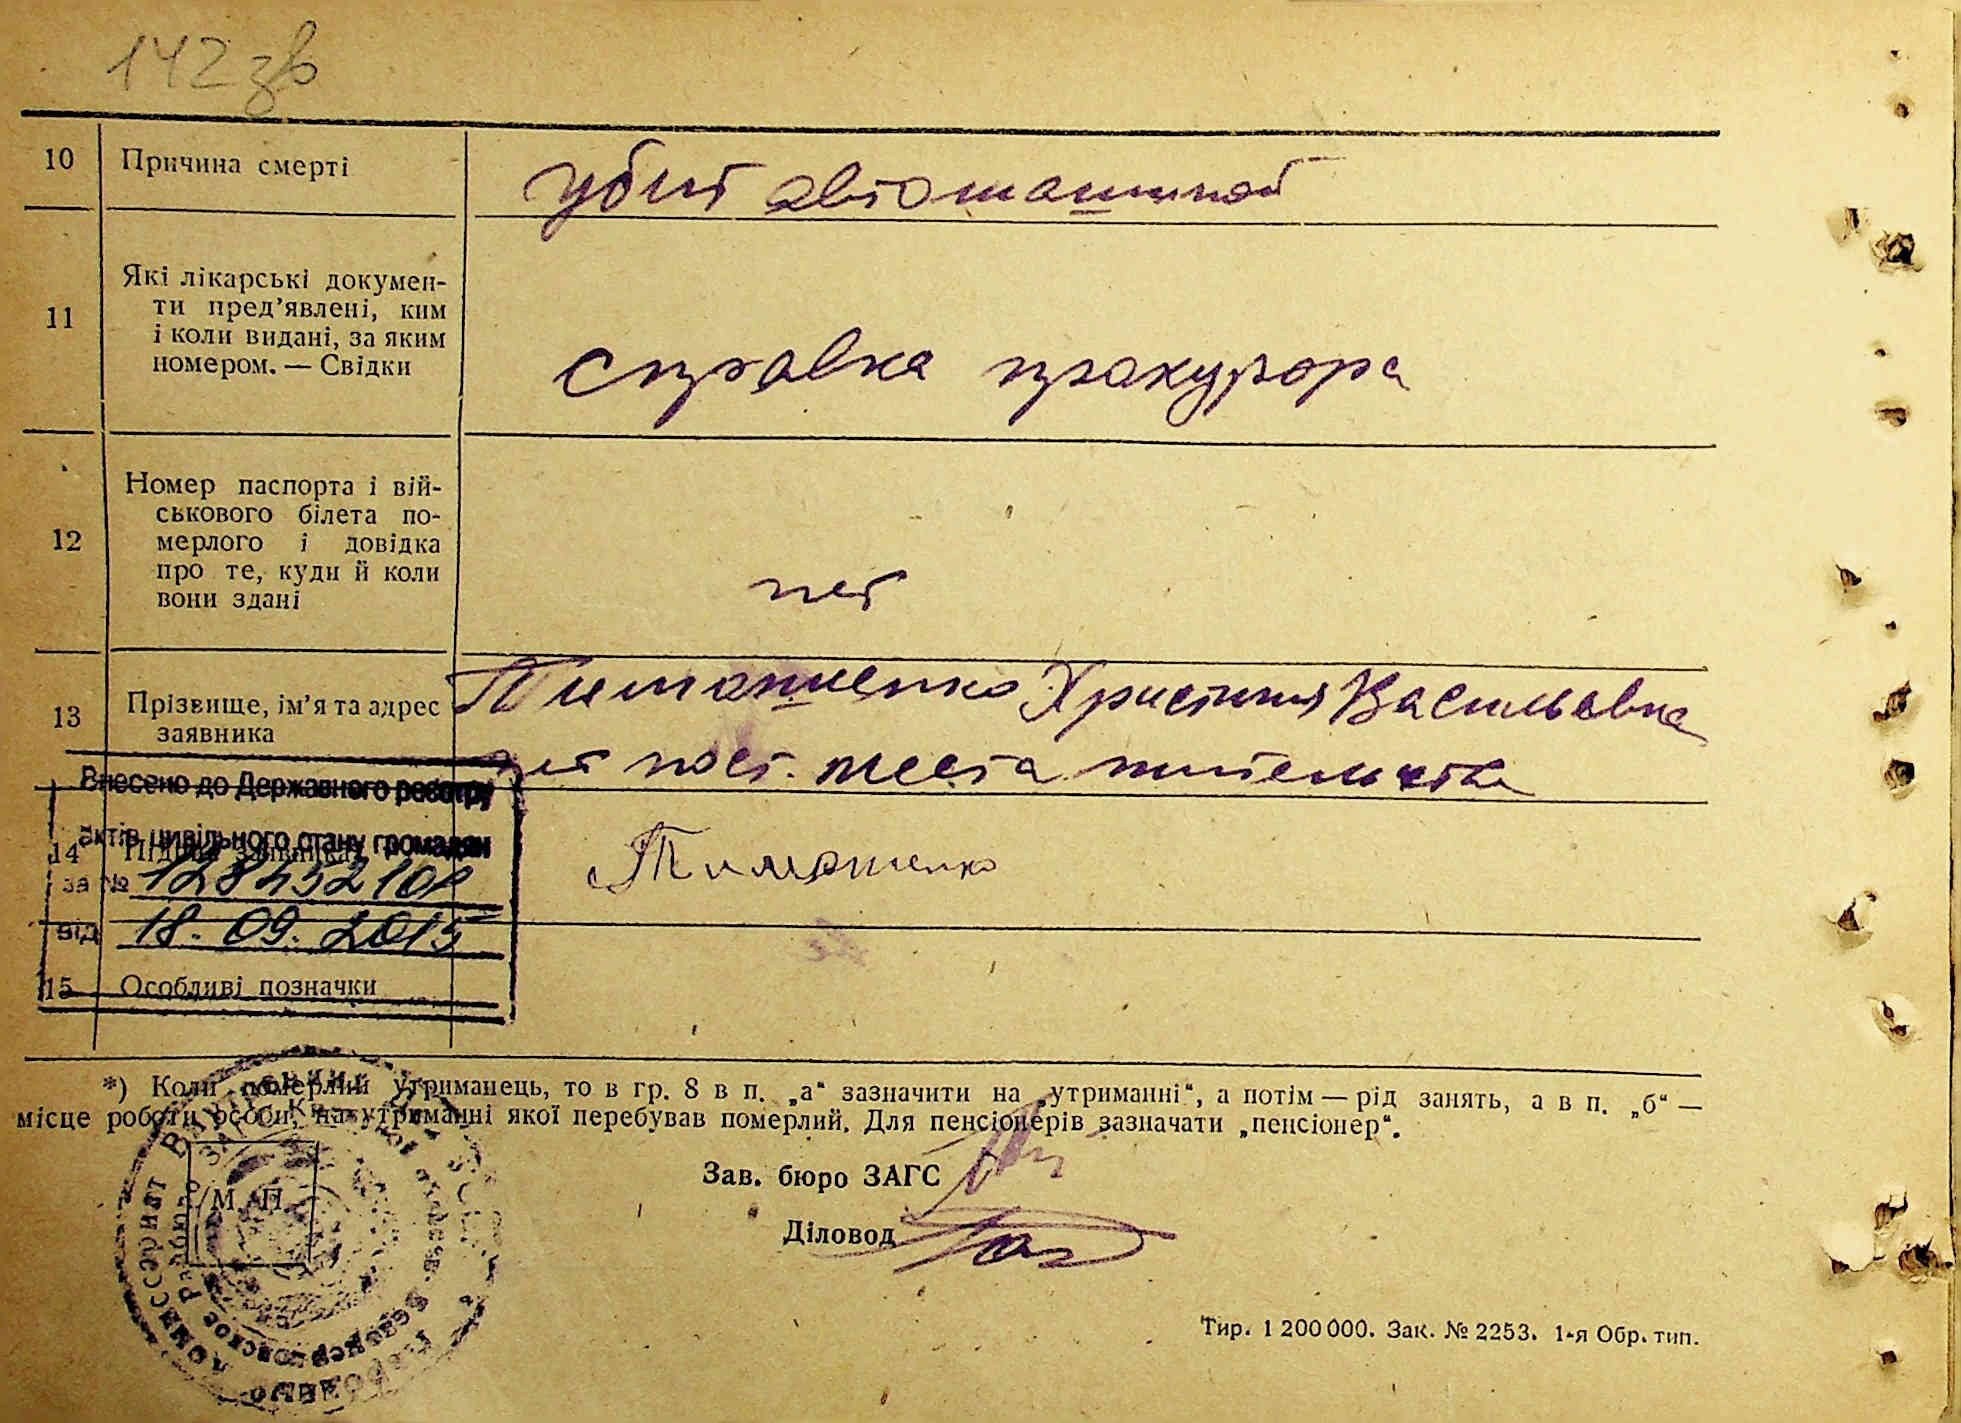 142 зв
10 Причина смерті убит автомашиной
11 Які лікарські докумен-
ти пред’явлені, ким
і коли видані, за яким
номером. — Свідки
справка прокурора
12 Номер паспорта і вій-
ськового білета по-
мерлого і довідка
про те, куди й коли
вони здані
нет
13 Прізвище, ім’я та адрес
заявника
Тимошенко Христиния Васильевна
нет пост. места жительства
Внесено до Державного реєстру
актів цивільного стану громадян
14 Підпис заявника Тимошенко
за №
від 18.09.2015
15 Особливі позначки
*) Коли померлий утриманець, то в гр. 8 в п. „а“ зазначити на „утриманні“, а потім — рід занять, а в п. „б“ —
місце роботи особи, на утриманні якої перебував померлий. Для пенсіонерів зазначати „пенсіонер“.
Зав. бюро ЗАГС
М. П.
Діловод
Тир. 1 200 000. Зак. № 2253. 1-я Обр. тип.